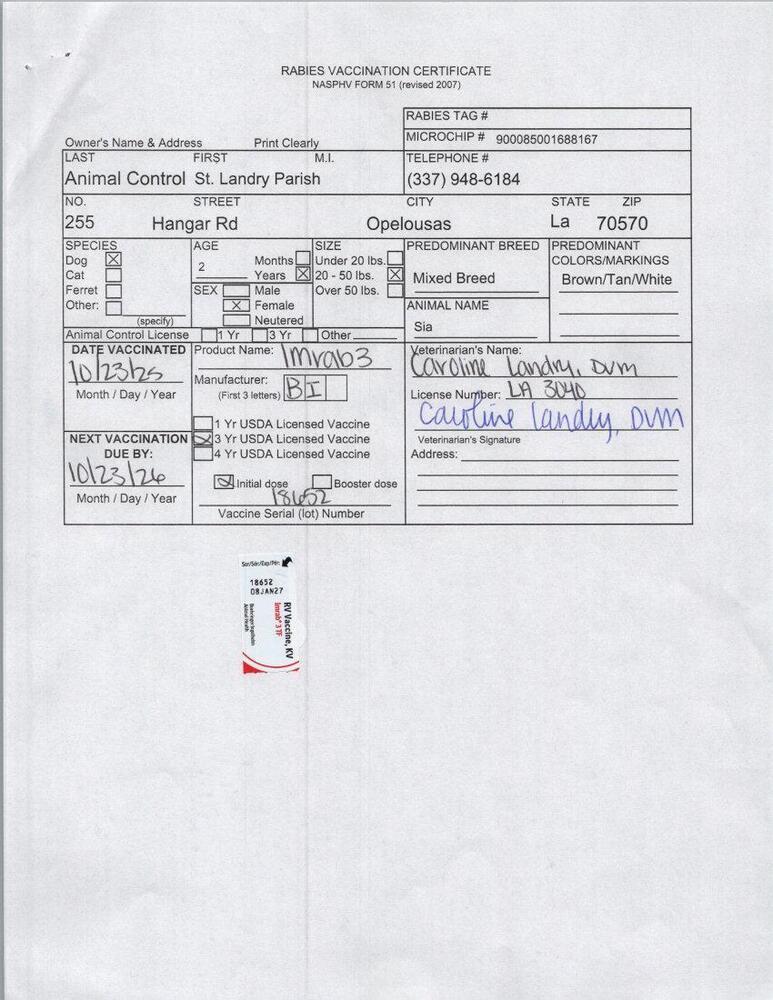 RABIES VACCINATION CERTIFICATE
NASPHV FORM 51 (revised 2007)
RABIES TAG #
Owner's Name & Address Print Clearly
MICROCHIP # 900085001688167
LAST FIRST M.I. TELEPHONE #
Animal Control St. Landry Parish (337) 948-6184
NO. STREET CITY STATE ZIP
255 Hangar Rd Opelousas La 70570
SPECIES AGE SIZE PREDOMINANT BREED PREDOMINANT
Dog X Months Under 20 lbs. COLORS/MARKINGS
Cat 2 Years X 20 - 50 lbs. X Mixed Breed Brown/Tan/White
Ferret SEX Male Over 50 lbs.
Other: X Female ANIMAL NAME
(specify) Neutered Sia
Animal Control License 1 Yr 3 Yr Other
DATE VACCINATED Product Name: Imrab3 Veterinarian's Name:
10/23/25 Caroline Landry, DVM
Month / Day / Year Manufacturer: BI License Number: LA 3040
(First 3 letters)
Caroline Landry, DVM
1 Yr USDA Licensed Vaccine
NEXT VACCINATION 3 Yr USDA Licensed Vaccine Veterinarian's Signature
DUE BY: 4 Yr USDA Licensed Vaccine Address:
10/23/26
Initial dose Booster dose
Month / Day / Year 18652
Vaccine Serial (lot) Number
Ser/Sér/Exp/Pér:
18652
08JAN27
RV Vaccine, KV
Imrab® 3 TF
Boehringer Ingelheim
Animal Health